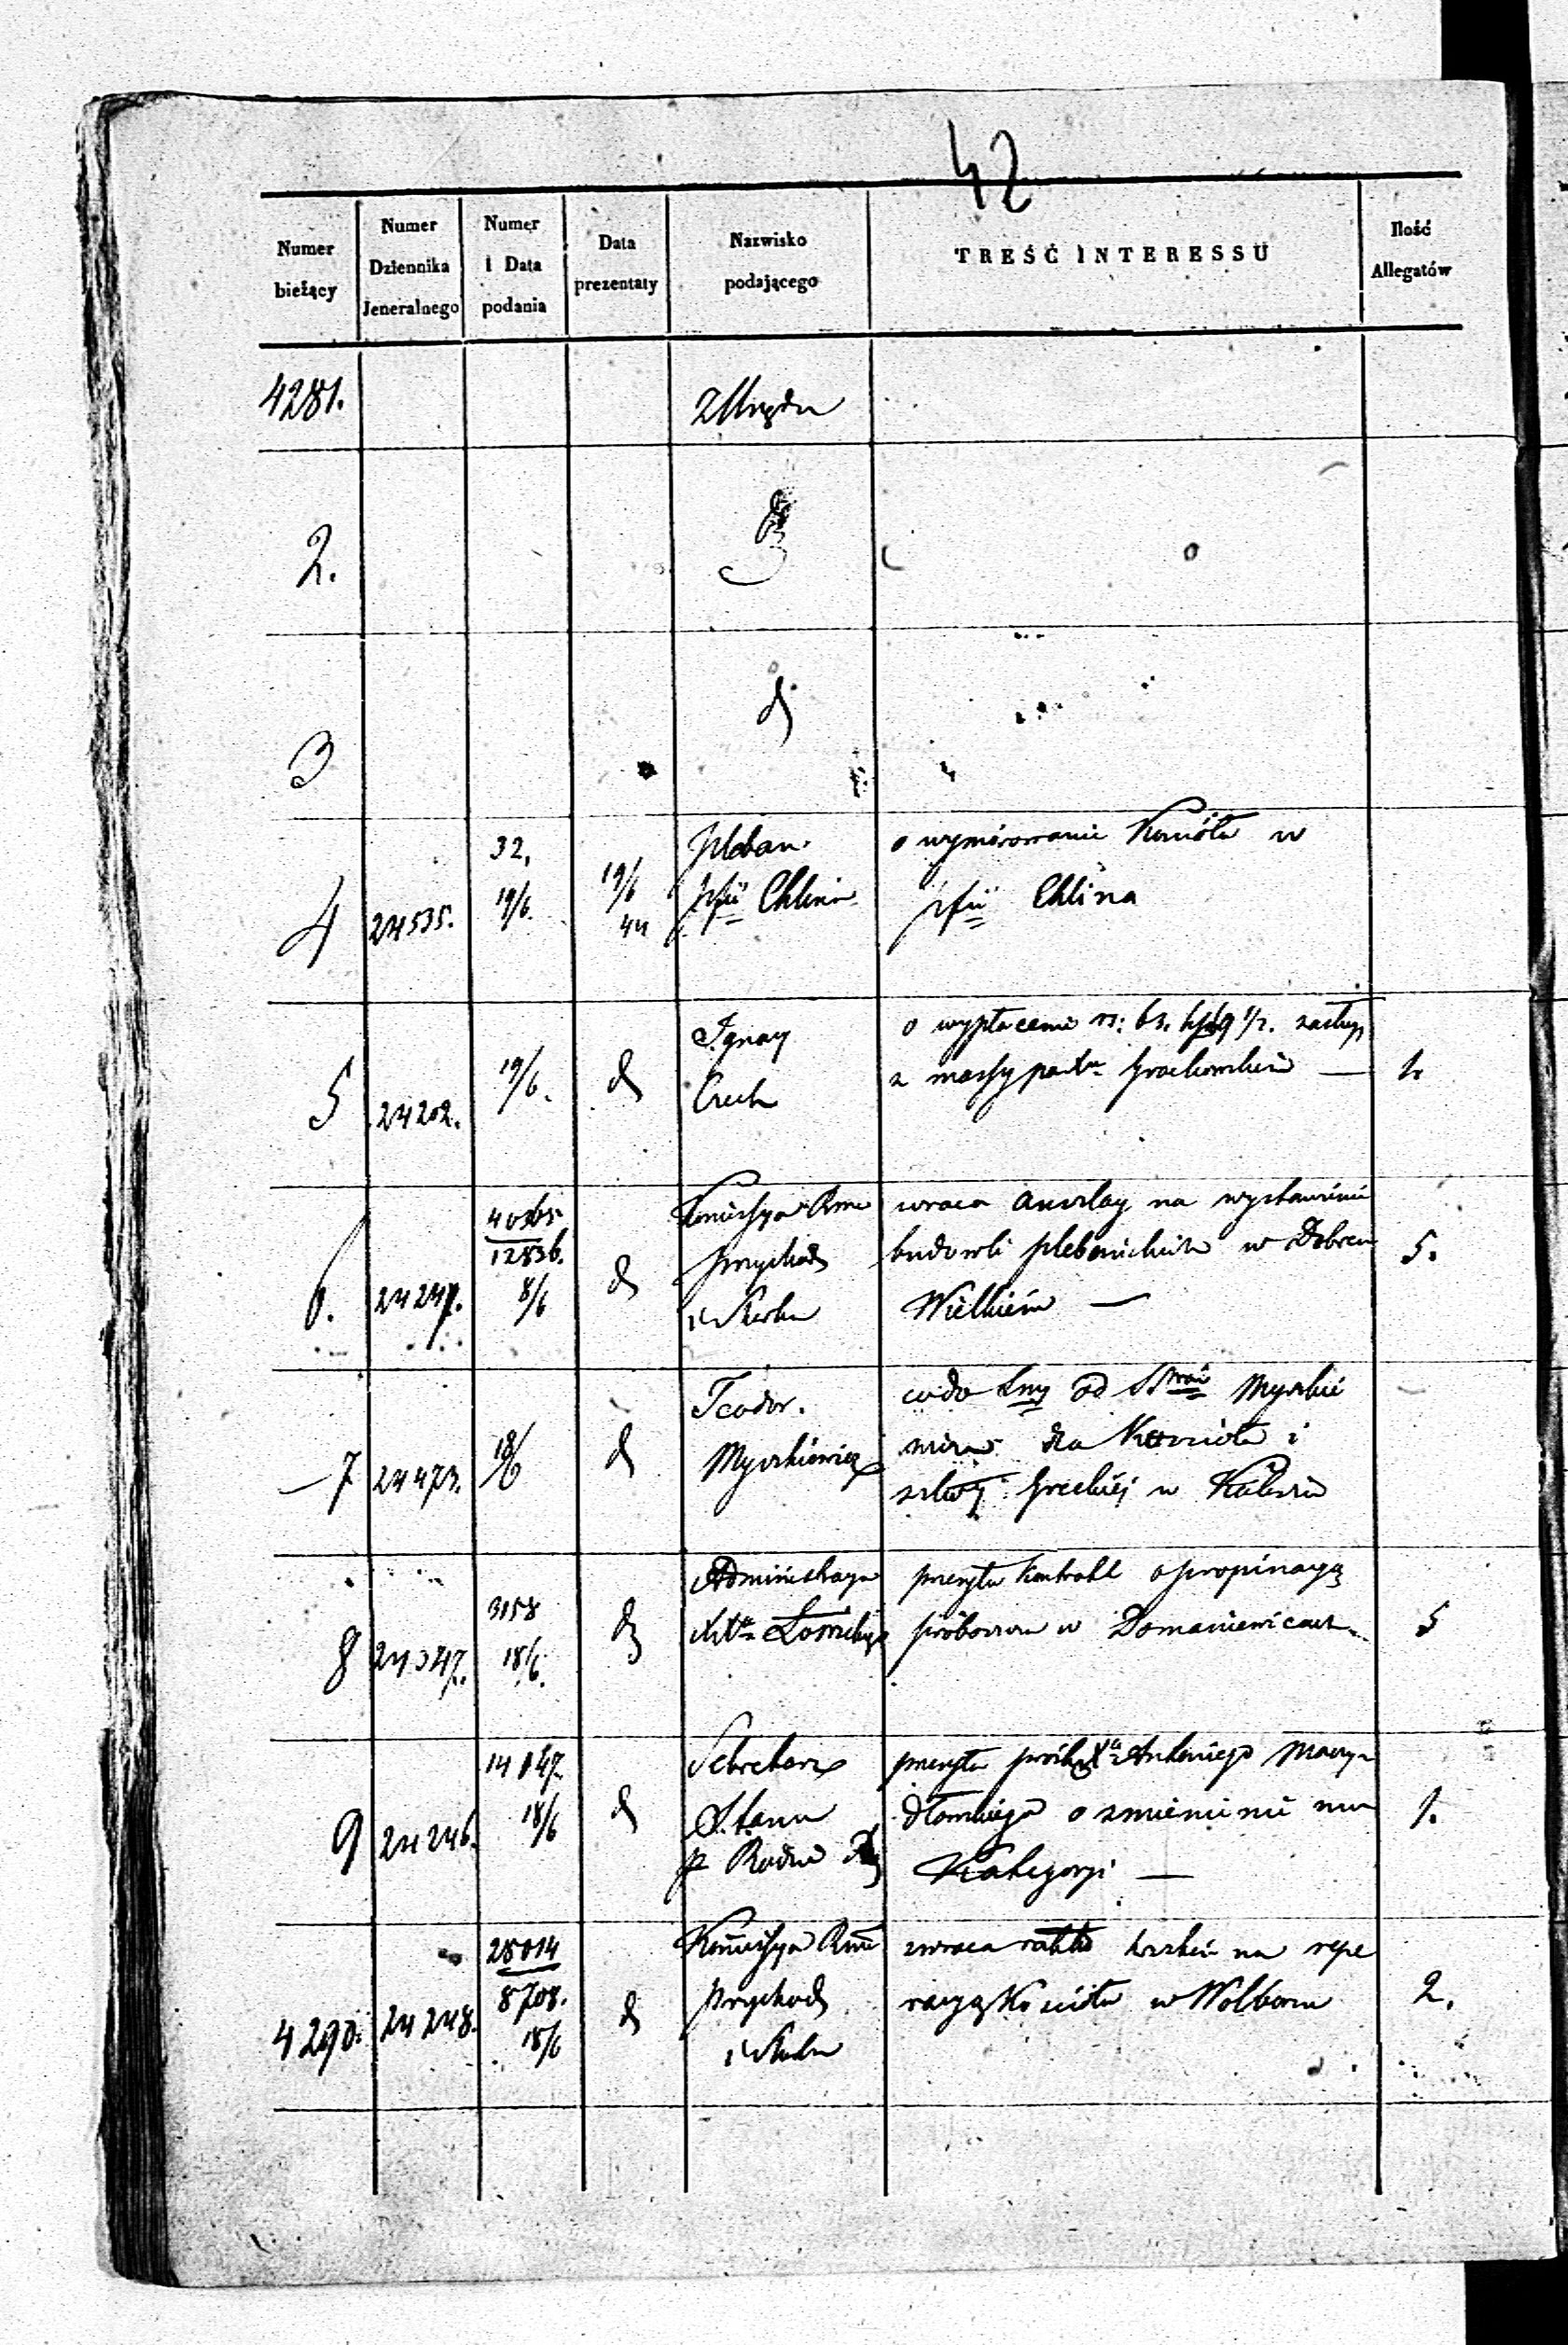 42
Numer bieżący | Numer Dziennika Jeneralnego | Numer i Data podania | Data prezentaty | Nazwisko podającego | TREŚĆ INTERESSU | Ilość Allegatów
4281. | z Urzędu
2. | d
3 | d
4 | 24535. | 32, 19/6. | 19/6 44 | Pleban
pfii Chlina | o wymurowanie Kościoła w
pfii Chlina
5 | 24202. | 19/6. | d | Ignacy
Czech | o wypłacenie rs: 63. k 9 1/2. zastęp
z massy Grochowskich — | 1.
6. | 24247. | 40365 12836. 8/6 | d | Kommissya Rm
Przychod
i Skarbu | zwraca anszlag na wystawienie
budowli plebańskich w Dobrcu
Wielkiem — | 5.
7 | 24473. | 18/6 | d | Teodor.
Myszkiewicz | codo Sny od Myszkie
wicza dla Kościoła i
szkoły Greckiej w Kaliszu
8 | 24347. | 3158 18/6. | d | Administracya
Xtwa Łowickiego | przesyła kontrakt o propinacyą
proboszcza w Domaniewicach | 5
9 | 24246. | 14147. 18/6 | d | Sekretarz
Stanu
p Radzie | przesyła prośbę Xa Antoniego
o zmienienie mu
Kategoryi — | 1.
4290. | 24248. | 28014 8708. 18/6 | d | Kommissya Rm
Przychod
i Skarbu | zwraca na repe
racyą Kościoła w Wolborzu | 2.